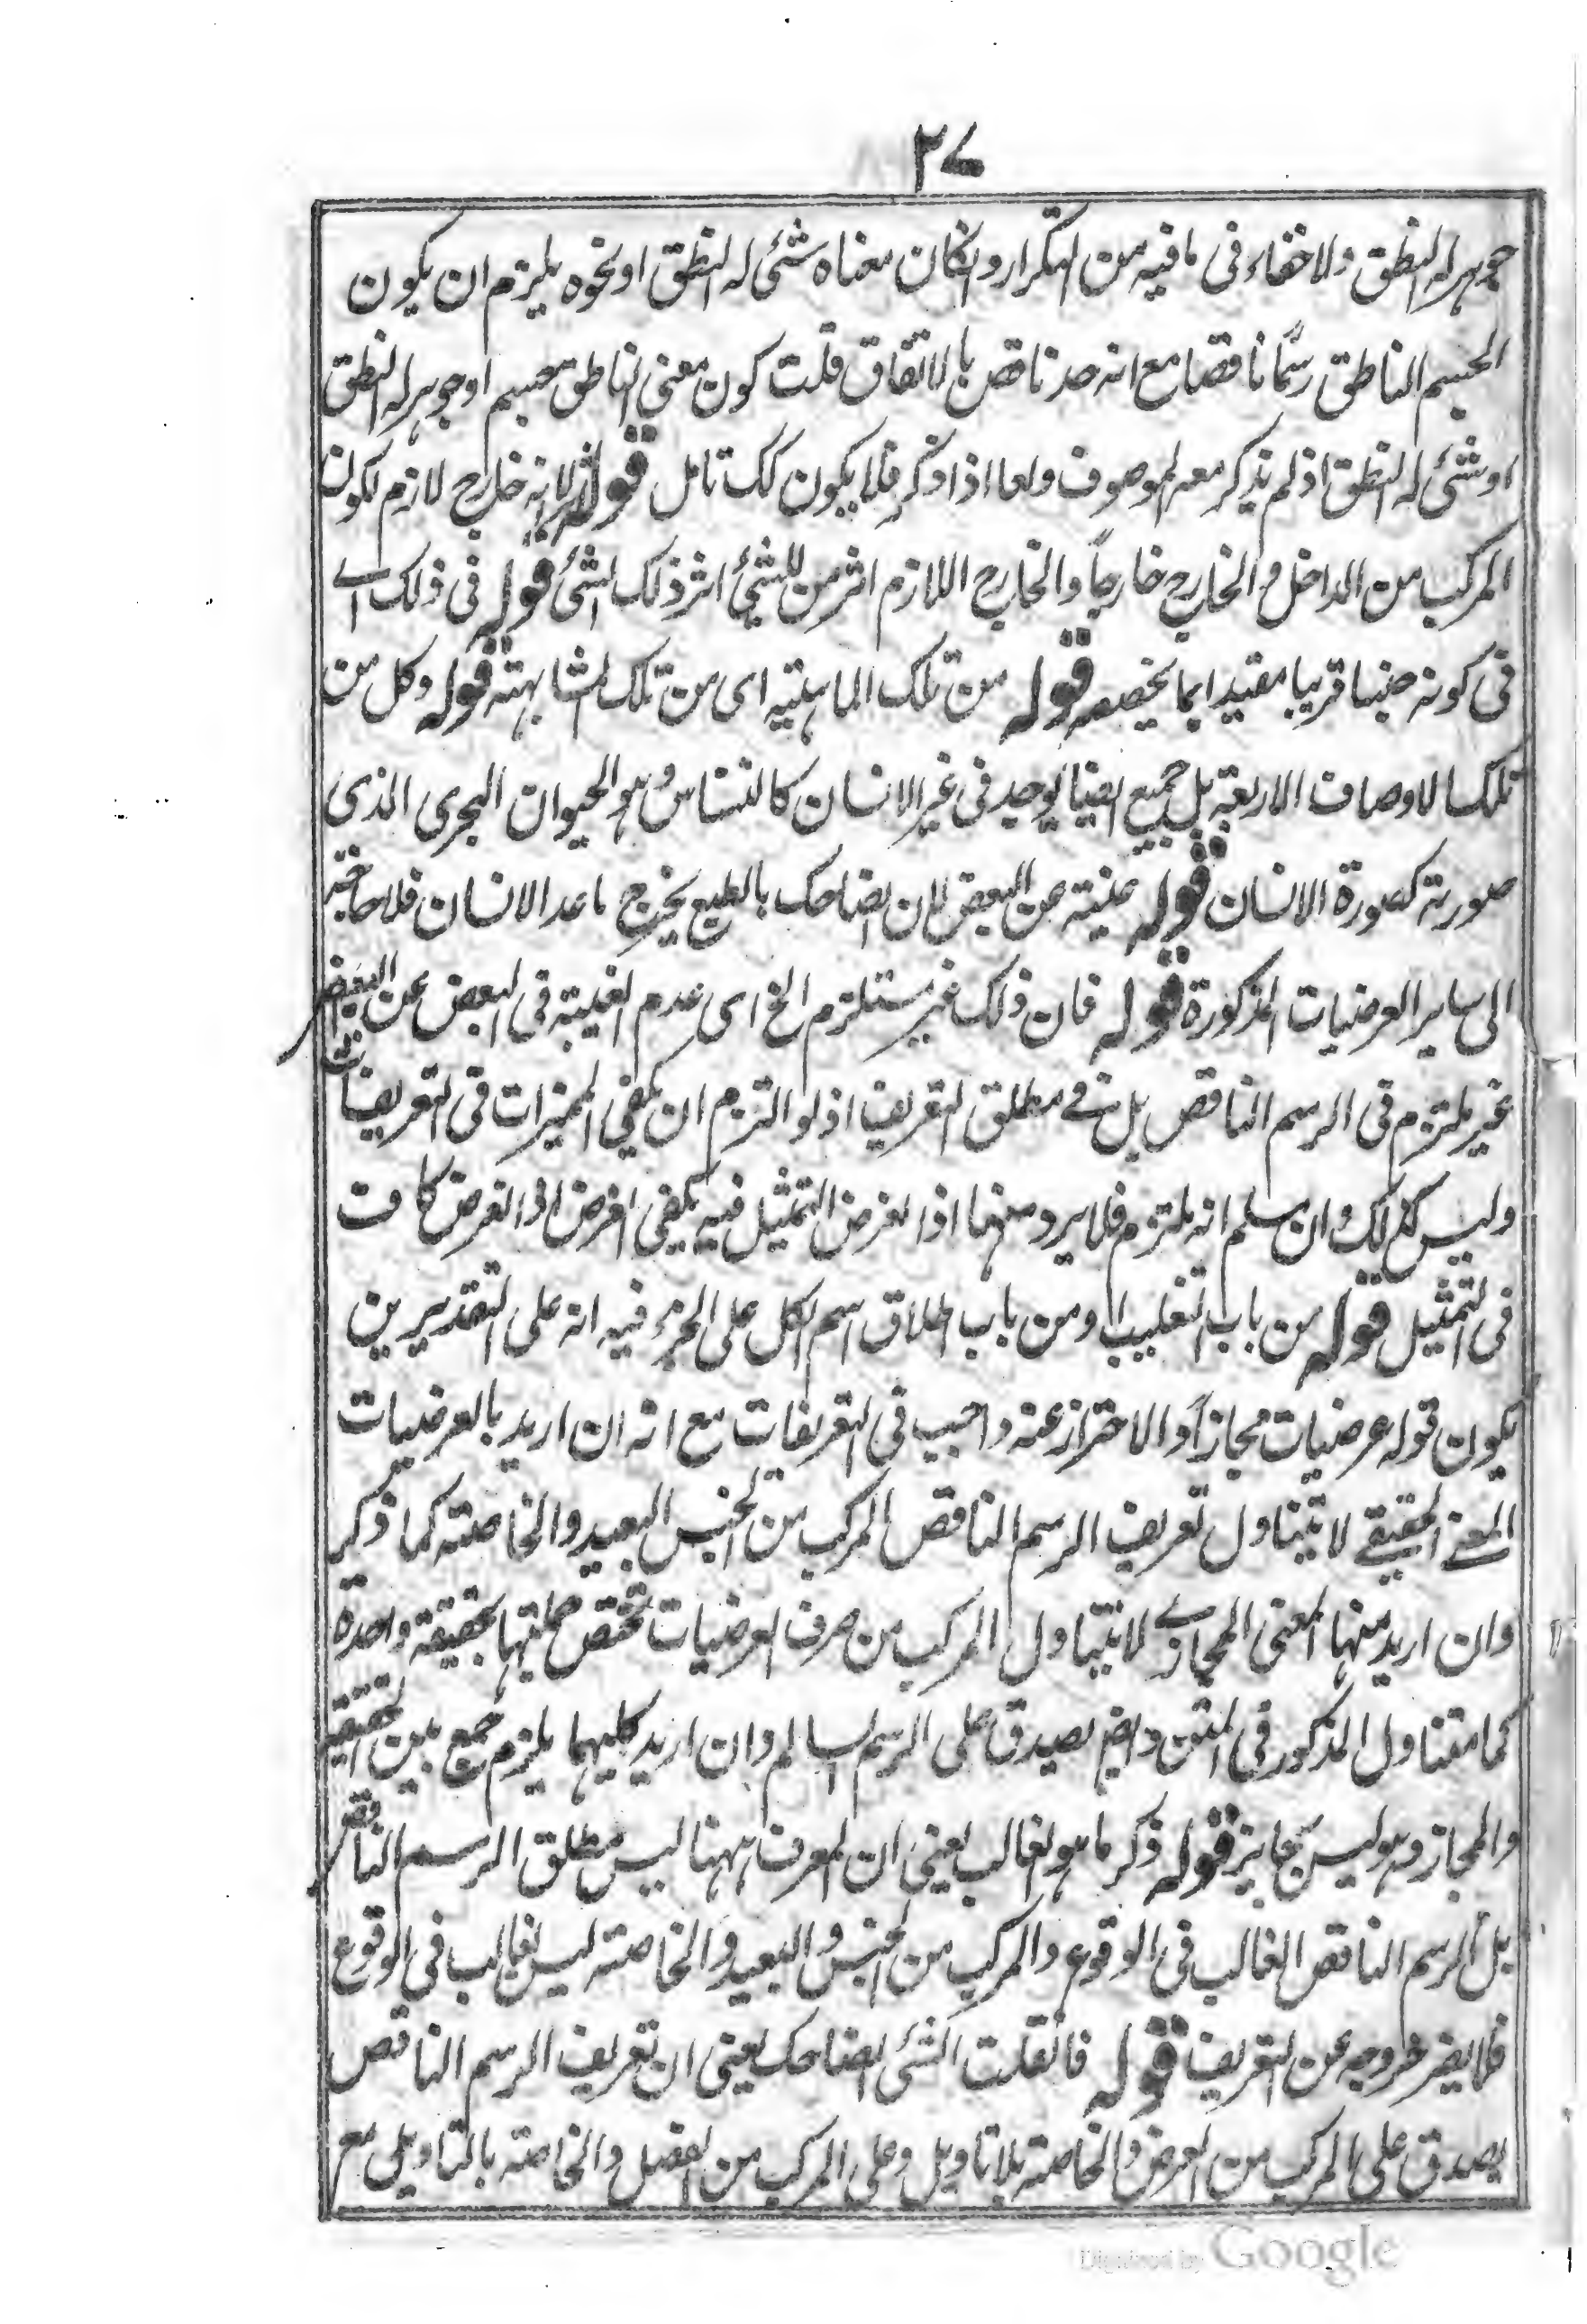 ٢٧
جوهر له النطق ولا خفاء فى ما فيه من التكرار وانكان معناه شئى له النطق او نحوه يلزم ان يكون
الجسم الناطق رسمًا ناقصا مع انه حد ناقص بالاتفاق قلت كون معنى الناطق جسم او جوهر له النطق
او شئى له النطق اذ لم يذكر معه الموصوف واما اذا ذكر فلا يكون كك تامل قوله لانه خارج لازم لكون
المركب من الداخل و الخارج خارجاً والخارج اللازم اثر من للشئى اثر ذلك الشئى قوله فى ذلك اے
فى كونه جنسا قريبا مقيدا بما يخصه قوله من تلك الماهيته اى من تلك المشابهته قوله وكل من
تلك الاوصاف الاربعة بل جميع ايضا يوجد فى غير الانسان كالنسناس وهو الحيوان البحرى الذى
صورته كصورة الانسان قوله غنيته عن البعض لان الضاحك بالطبع يخرج ما عدا الانسان فلا حاجته
الى ساير العرضيات المذكورة قوله فان ذلك غير مستلزم الخ اى عدم الغنيته فى البعض عن البعض
غير ملتزم فى الرسم الناقص بل فے مطلق التعريف اذ لو التزم ان يكفى المميزات فى التعريفات
وليس كذلك وان سلم انه ملتزم فلا يرد ههنا اذا لغرض التمثيل فيه يكفى الفرض اذ الفرض كاف
فى التمثيل قوله من باب التغليب او من باب اطلاق اسم الكل على الجزء فيه انه على التقديرين
يكون قوله عرضيات مجازاً والاحتراز عنه واجب فى التعريفات مع انه ان اريد بالعرضيات
المعنے الحقيقے لا يتناول تعريف الرسم الناقص المركب من الجنس البعيد والخاصته كما ذكر
وان اريد منها المعنى المجازے لا يتناول المركب من صرف العرضيات تختص جملتها بحقيقة واحدة
كما متناول المذكور فى المتن وايضا يصدق على الرسم السالم وان اريد كليهما يلزم جمع بين الحقيقة
والمجاز وهو ليس بجايز قوله ذكر ما هو الغالب يعنى ان المعرف ههنا ليس مطلق الرسم الناقص
بل الرسم الناقص الغالب فى الوقوع والمركب من الجنس و البعيد والخاصته ليس بغالب فى الوقوع
فلا يضر خروجه عن التعريف قوله فانقلت الشئى الضاحك يعنى ان تعريف الرسم الناقص
يصدق على المركب من العرض والخاصته بلا تاويل وعلى المركب من الفصل والخاصته بالتاويل مع
Digitized by Google